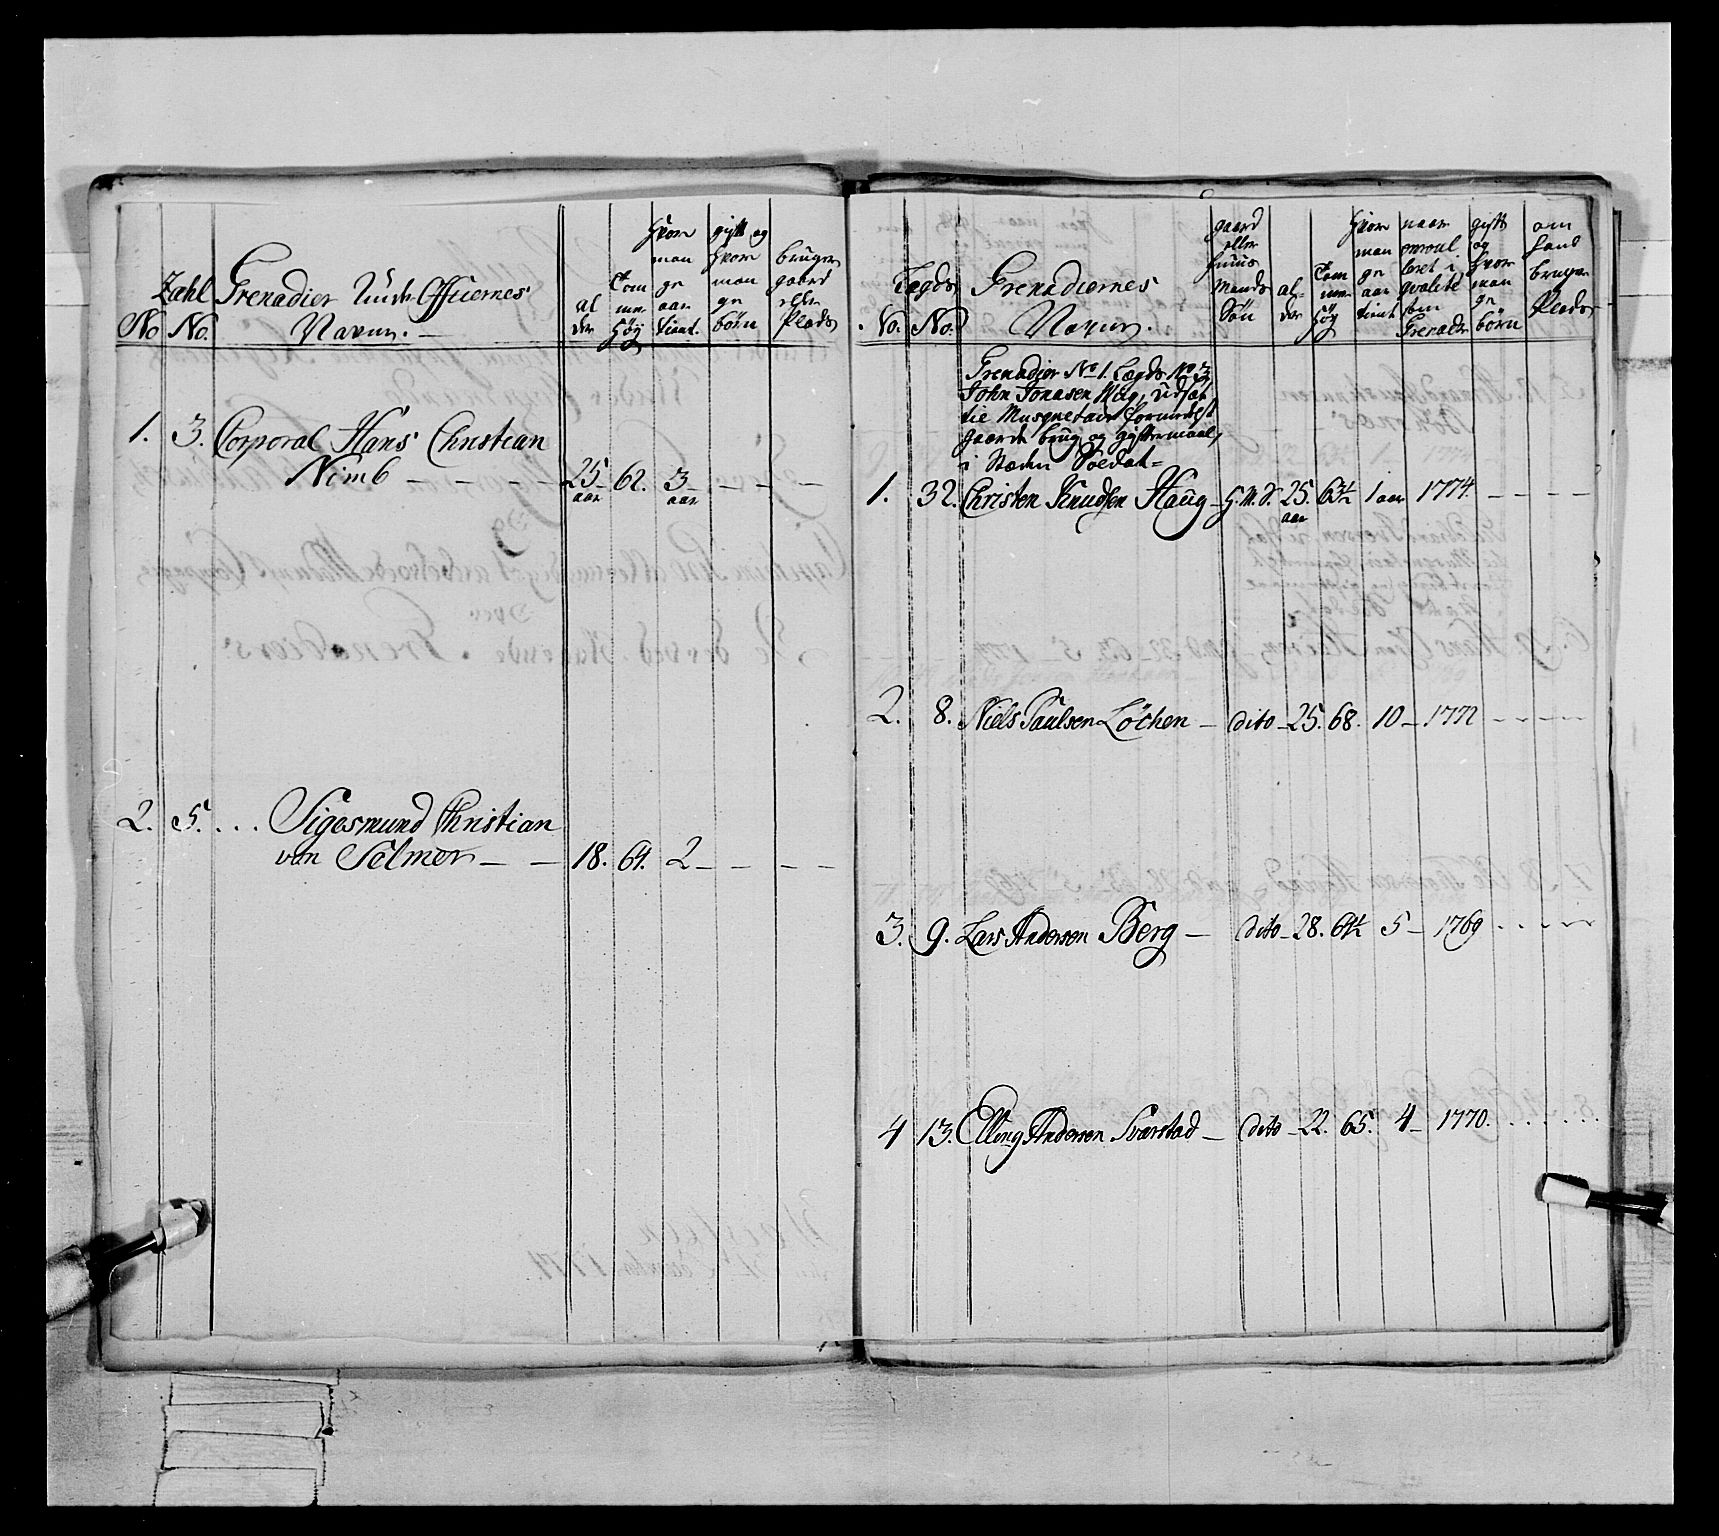 No
Zahl No.
Grenadier Under Officiernes Navne.
al der
Tom mer Høy
Hvor man ge aar tient.
gift og hvor man ge børn
bruger gaard eller Plads
1. 3. Corporal Hans Christian
Nimb - - - - 25 aar 62. 3 aar - - -
2. 5. ... Sigesmund Christian
von Selmer - - 18. 64. 2 - - - -
No.
Lægds No.
Grenadiernes Navne.
gaard eller huus Mands Søn
al der
Tom mer Høy
Hvor man ge aar tient
naar enroul leret i qvalité som Grenadr
gift og hvor man ge børn
om hand bruger Plads
Grenadier No 1. Lægds No 3
John Jonasen Hug, udsat
til Musqueteur formedelst
gaards brug og giftermaal,
i Steden Soldat =
1. 32. Christen Knudsen Haug - G.M.S. 25. aar 63½ 1 aar 1774. - - - -
2. 8. Niels Paulsen Løchen - dito - 25. 68. 10 - 1772 - - - -
3. 9. Lars Andersen Berg - dito - 28. 64½ 5 - 1769 - - - -
4 13. Elling Andersen Sværstad - dito - 22. 65. 4 - 1770. . . . . .